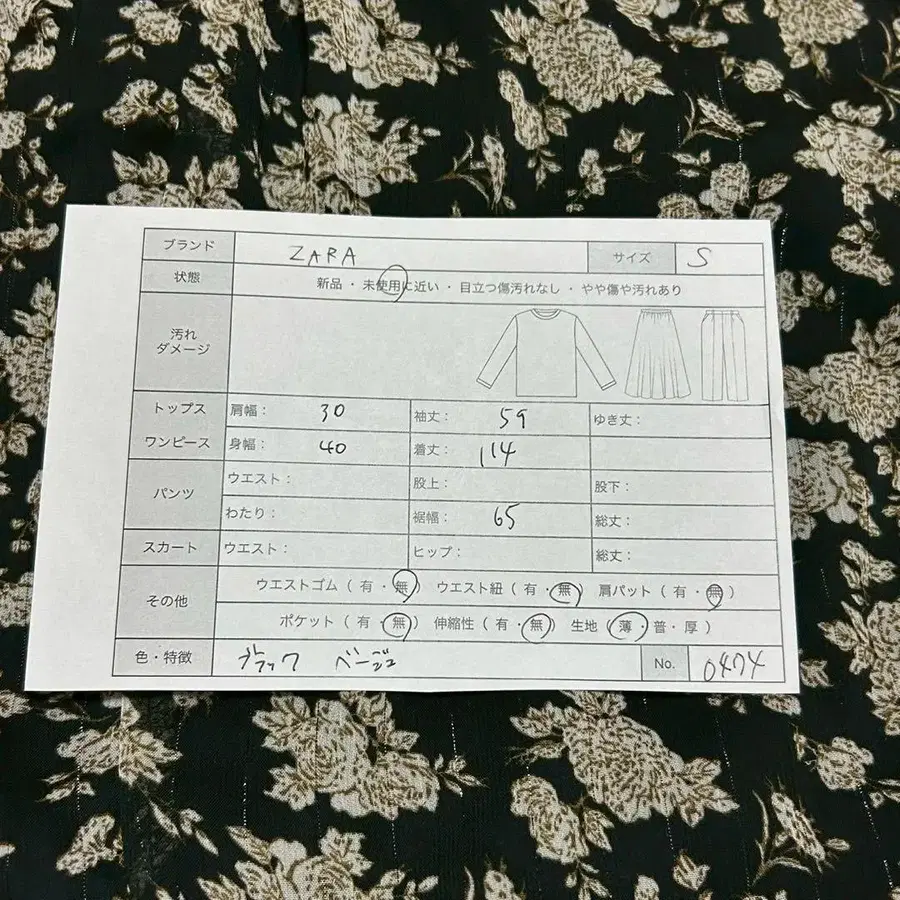 ブランド ZARA サイズ S
状態 新品・未使用に近い・目立つ傷汚れなし・やや傷や汚れあり
汚れ
ダメージ
トップス 肩幅: 30 袖丈: 59 ゆき丈:
ワンピース 身幅: 40 着丈: 114
パンツ ウエスト: 股上: 股下:
わたり: 裾幅: 65 総丈:
スカート ウエスト: ヒップ: 総丈:
その他 ウエストゴム(有・無) ウエスト紐(有・無) 肩パット(有・無)
ポケット(有・無) 伸縮性(有・無) 生地(薄・普・厚)
色・特徴 ブラック ベージュ No. 0474